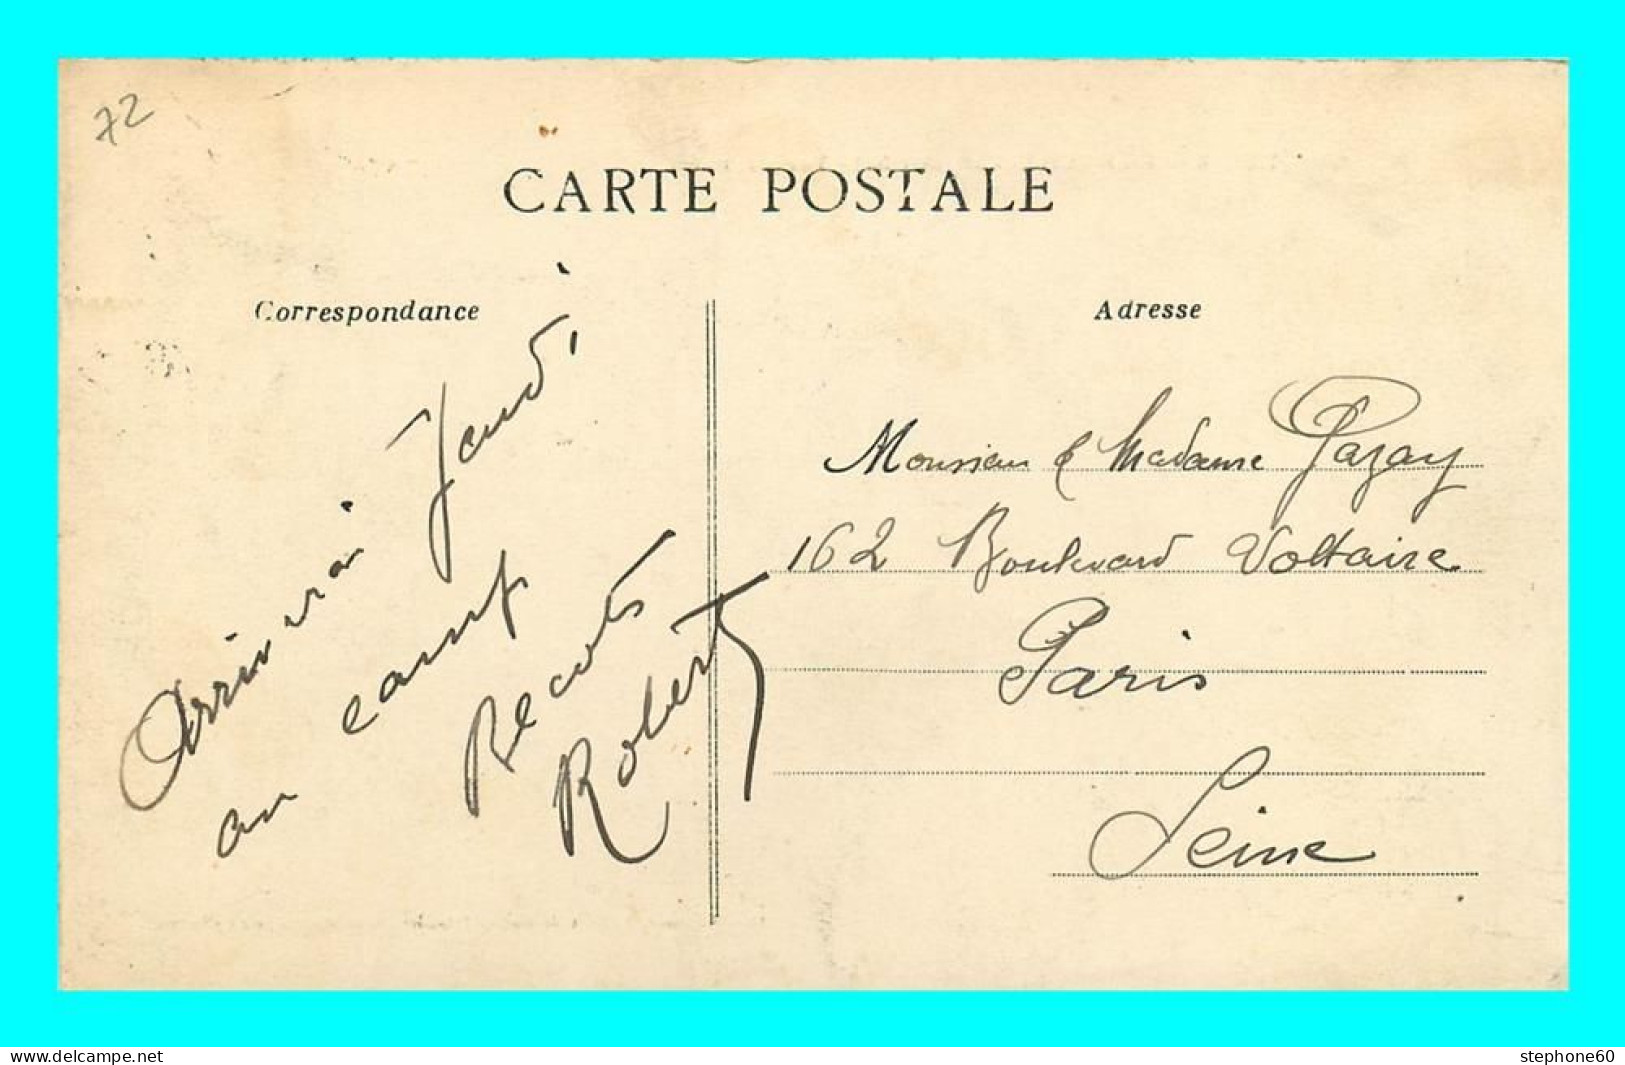 72
CARTE POSTALE
Correspondance
Arriverai Jeudi
au camp
Bécots
Robert
Adresse
Monsieur & Madame Pazay
162 Boulevard Voltaire
Paris
Seine
delcampe.net
stephone60